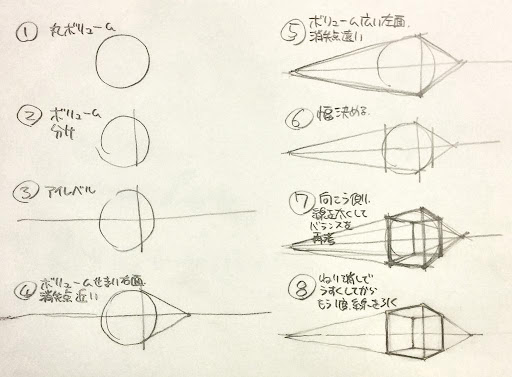 ① 丸ボリューム
② ボリューム
分け
③ アイレベル
④ ボリュームせまい右面.
消失点近い
⑤ ボリューム広い左面.
消失点遠い
⑥ 幅決める.
⑦ 向こう側.
線を太くして
バランスを
再考
⑧ ねり消しで
うすくしてから
もう1度、線をひく